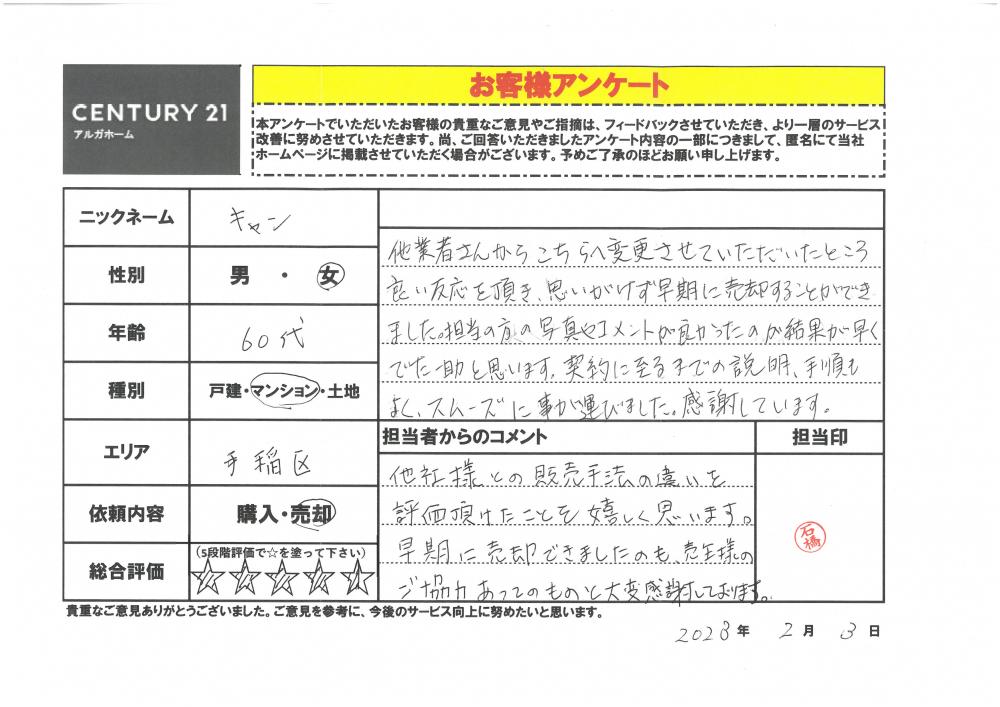 CENTURY 21
アルガホーム
お客様アンケート
本アンケートでいただいたお客様の貴重なご意見やご指摘は、フィードバックさせていただき、より一層のサービス
改善に努めさせていただきます。尚、ご回答いただきましたアンケート内容の一部につきまして、匿名にて当社
ホームページに掲載させていただく場合がございます。予めご了承のほどお願い申し上げます。
ニックネーム
キャン
性別
男 ・ 女
年齢
60代
種別
戸建・マンション・土地
エリア
手稲区
依頼内容
購入・売却
総合評価
(5段階評価で☆を塗って下さい)
☆☆☆☆☆
他業者さんからこちらへ変更させていただいたところ
良い反応を頂き、思いがけず早期に売却することができ
ました。担当の方の写真やコメントが良かったのが結果が早く
でた一助と思います。契約に至るまでの説明、手順も
よく、スムーズに事が運びました。感謝しています。
担当者からのコメント
他社様との販売手法の違いを
評価頂けたことを嬉しく思います。
早期に売却できましたのも、売主様の
ご協力あってのものと大変感謝しております。
担当印
石橋
貴重なご意見ありがとうございました。ご意見を参考に、今後のサービス向上に努めたいと思います。
2023年 2月 3日